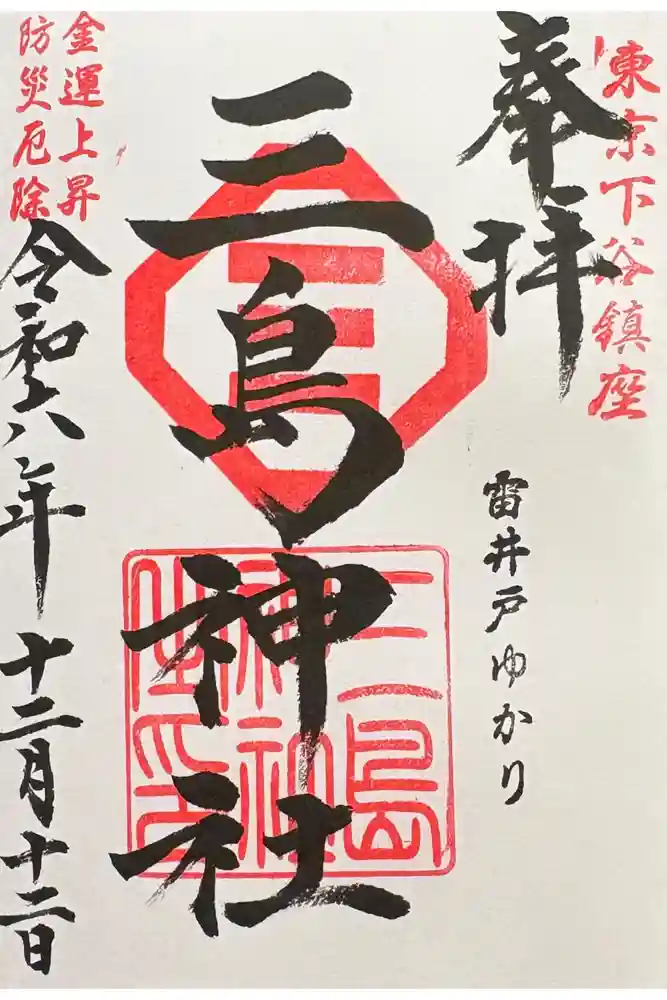 東京下谷鎮座
奉拝
雷井戸ゆかり
三島神社
三
三島
神社
金運上昇
防災厄除
令和六年 十二月十二日